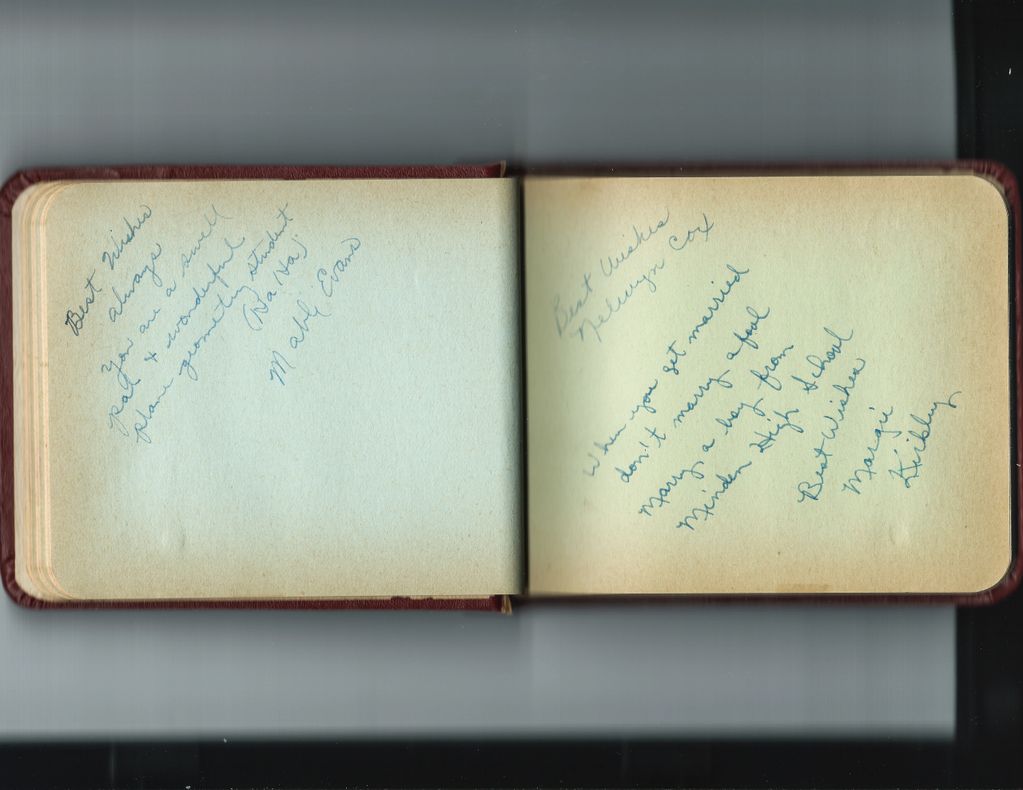 Best Wishes
always
You are a swell
pal & wonderful
plane geometry student
(Ha Ha)
Mably Evans
Best Wishes
Nelwyn Cox
When you get married
don't marry a fool
Marry a boy from
Minden High School
Best Wishes
Margie
Kirkley